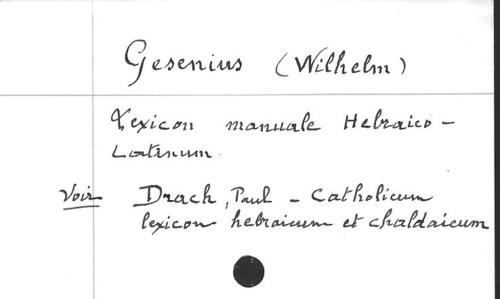 Gesenius (Wilhelm)
Lexicon manuale Hebraico-
Latinum.
Voir Drach, Paul - Catholicum
lexicon hebraicum et chaldaicum